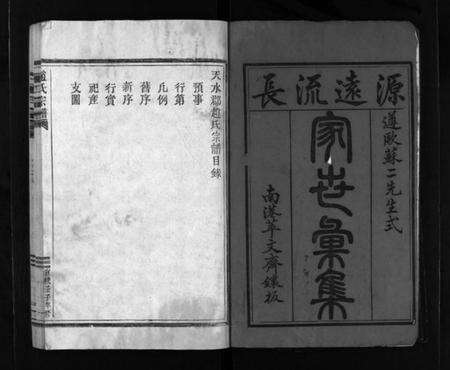 源遠流長
遵歐蘇二先生式
家世彙集
南港華文齋鐫板
天水郡趙氏宗譜目錄
預事
行第
凡例
舊序
新序
行實
祀產
支圖
趙氏宗譜